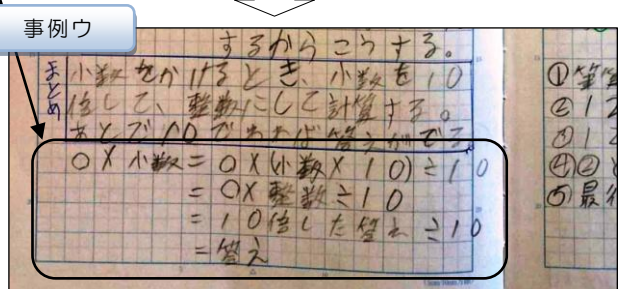 事例ウ
するからこうする。
まとめ
小数をかけるとき、小数を10
倍して、整数にして計算する。
あとで10でわれば答えがでる
○×小数=○×(小数×10)÷10
=○×整数÷10
=10倍した答え÷10
=答え
①筆算
②12
③12
④②と
⑤最